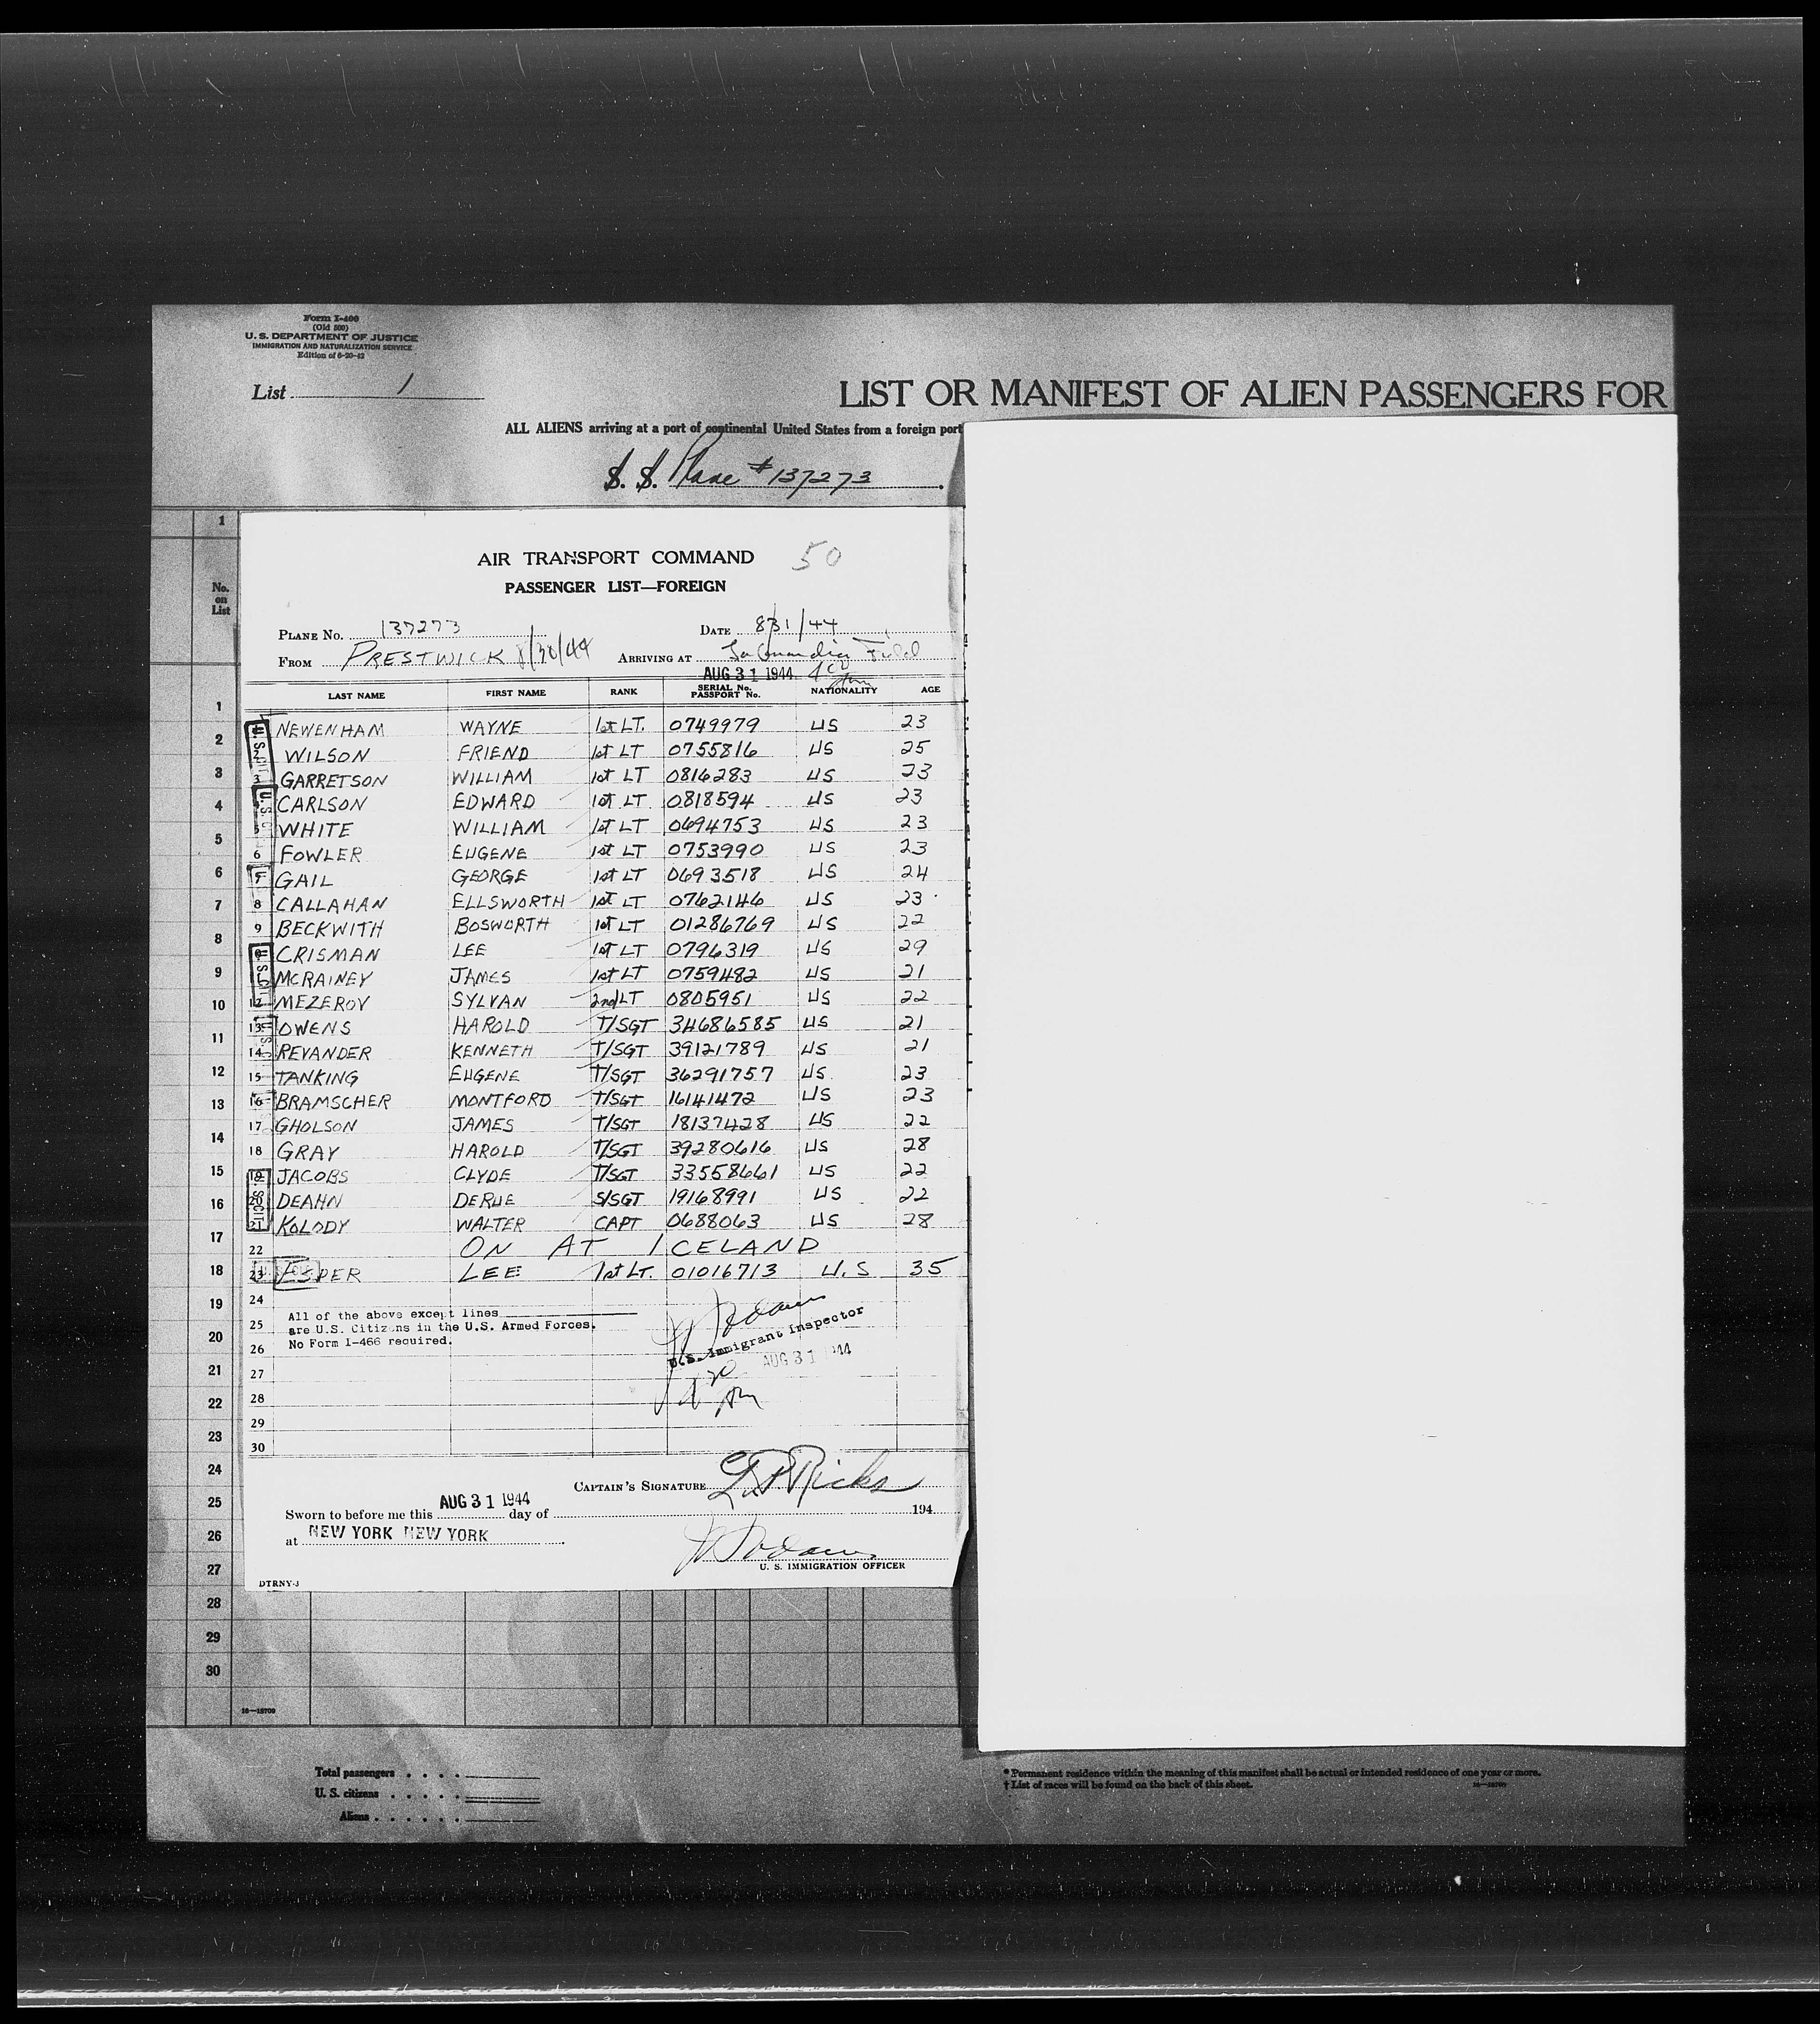 Form I-400
(Old 500)
U. S. DEPARTMENT OF JUSTICE
IMMIGRATION AND NATURALIZATION SERVICE
Edition of 6-20-42
List 1
LIST OR MANIFEST OF ALIEN PASSENGERS FOR
ALL ALIENS arriving at a port of continental United States from a foreign port
S. S. Plane #137273
No. on List
AIR TRANSPORT COMMAND 50
PASSENGER LIST—FOREIGN
PLANE NO. 137273 DATE 8/31/44
FROM PRESTWICK 8/30/44 ARRIVING AT LaGuardia Field
AUG 31 1944
LAST NAME FIRST NAME RANK SERIAL No. PASSPORT No. NATIONALITY AGE
NEWENHAM WAYNE 1st LT. 0749979 US 23
WILSON FRIEND 1st LT 0755816 US 25
3 GARRETSON WILLIAM 1st LT 0816283 US 23
CARLSON EDWARD 1st LT. 0818594 US 23
5 WHITE WILLIAM 1st LT 0694753 US 23
6 FOWLER EUGENE 1st LT 0753990 US 23
7 GAIL GEORGE 1st LT 0693518 US 24
8 CALLAHAN ELLSWORTH 1st LT 0762146 US 23
9 BECKWITH BOSWORTH 1st LT 01286769 US 22
CRISMAN LEE 1st LT 0796319 US 29
MCRAINEY JAMES 1st LT 0759482 US 21
12 MEZEROV SYLVAN 2nd LT 0805951 US 22
13 OWENS HAROLD T/SGT 34686585 US 21
14 REVANDER KENNETH T/SGT 39121789 US 21
15 TANKING EUGENE T/SGT 36291757 US 23
16 BRAMSCHER MONTFORD T/SGT 16141472 US 23
17 GHOLSON JAMES T/SGT 18137428 US 22
18 GRAY HAROLD T/SGT 39280616 US 28
19 JACOBS CLYDE T/SGT 33558661 US 22
20 DEAHN DERUE S/SGT 19168991 US 22
21 KOLODY WALTER CAPT 0688063 US 28
22 ON AT ICELAND
23 ESPER LEE 1st LT. 01016713 U.S 35
24
25
26
27
28
29
30
All of the above except lines
are U.S. Citizens in the U.S. Armed Forces.
No Form I-466 required.
U.S. Immigrant Inspector
AUG 31 1944
CAPTAIN'S SIGNATURE Ricks
Sworn to before me this AUG 31 1944 day of 194
at NEW YORK NEW YORK
U. S. IMMIGRATION OFFICER
DTRNY-3
1
1
2
3
4
5
6
7
8
9
10
11
12
13
14
15
16
17
18
19
20
21
22
23
24
25
26
27
28
29
30
16—18709
Total passengers
U. S. citizens
Aliens
* Permanent residence within the meaning of this manifest shall be actual or intended residence of one year or more.
† List of races will be found on the back of this sheet.